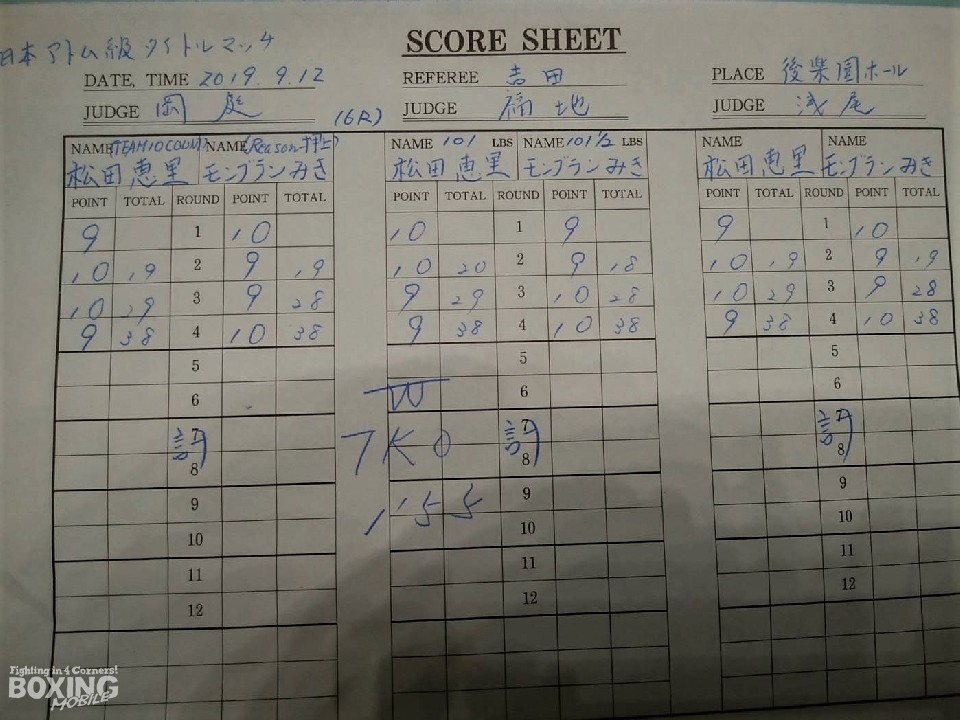 日本アトム級タイトルマッチ
SCORE SHEET
DATE, TIME 2019. 9. 12 REFEREE 吉田 PLACE 後楽園ホール
JUDGE 岡庭 (6R) JUDGE 福地 JUDGE 浅尾
NAME (TEAM10COUNT) NAME (Reason押上) NAME 101 LBS NAME 101½ LBS NAME NAME
松田恵里 モンブランみき 松田恵里 モンブランみき 松田恵里 モンブランみき
POINT TOTAL ROUND POINT TOTAL POINT TOTAL ROUND POINT TOTAL POINT TOTAL ROUND POINT TOTAL
9 1 10 10 1 9 9 1 10
10 19 2 9 19 10 20 2 9 18 10 19 2 9 19
10 29 3 9 28 9 29 3 10 28 10 29 3 9 28
9 38 4 10 38 9 38 4 10 38 9 38 4 10 38
5 5 5
6 W 6 6
計 TKO 計 計
8 8 8
9 1'55 9 9
10 10 10
11 11 11
12 12 12
Fighting in 4 Corners!
BOXING
MOBILE